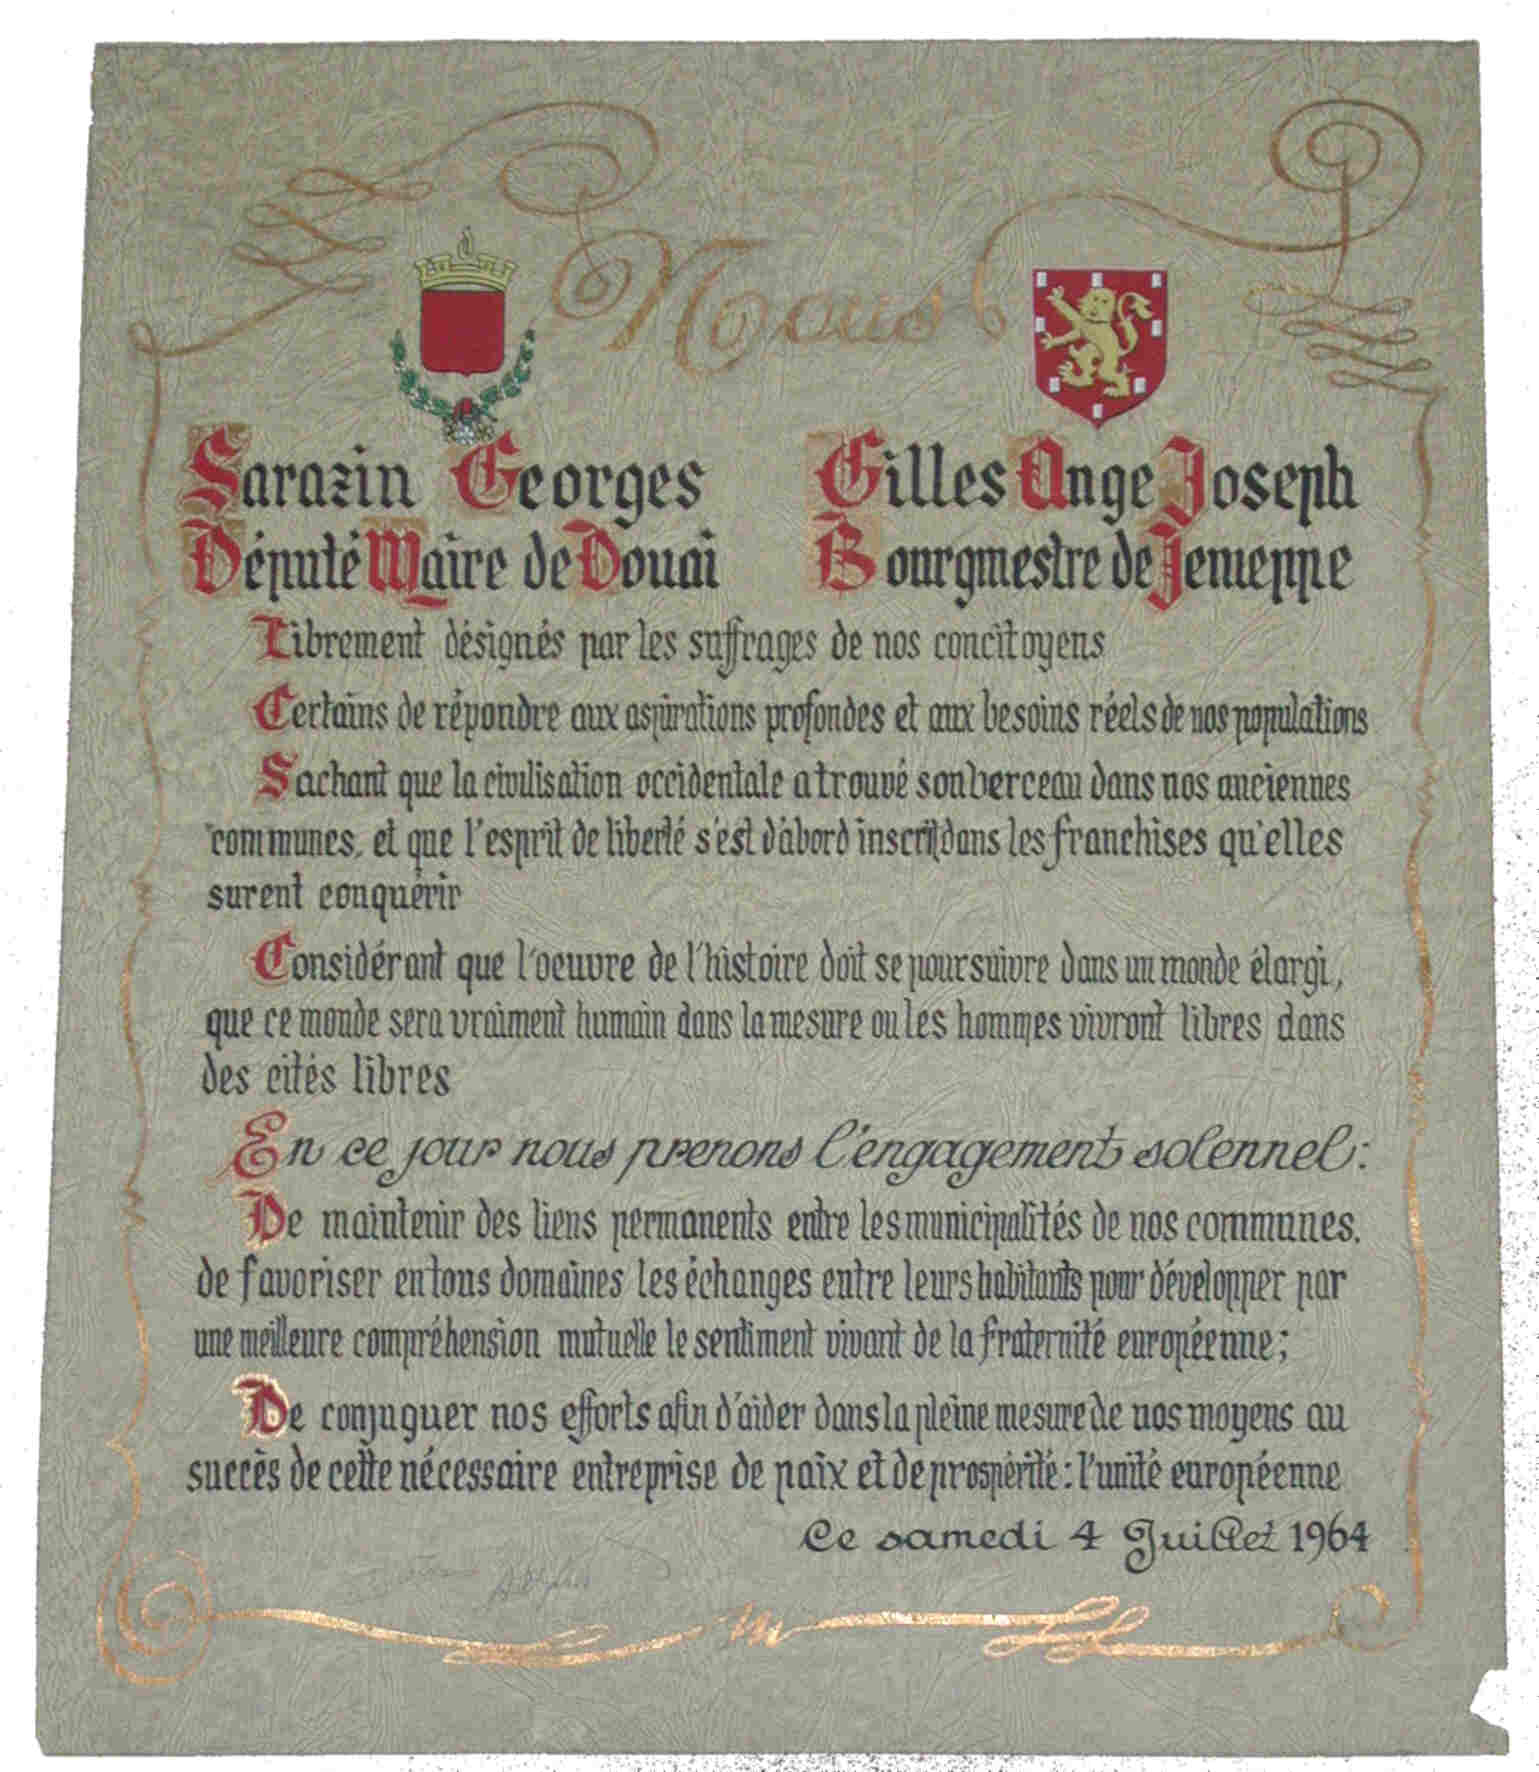 Nous
Sarazin Georges
Député Maire de Douai
Gilles Ange Joseph
Bourgmestre de Jemeppe
Librement désignés par les suffrages de nos concitoyens
Certains de répondre aux aspirations profondes et aux besoins réels de nos populations
Sachant que la civilisation occidentale a trouvé son berceau dans nos anciennes
communes, et que l'esprit de liberté s'est d'abord inscrit dans les franchises qu'elles
surent conquérir
Considérant que l'oeuvre de l'histoire doit se poursuivre dans un monde élargi,
que ce monde sera vraiment humain dans la mesure ou les hommes vivront libres dans
des cités libres
En ce jour nous prenons l'engagement solennel:
De maintenir des liens permanents entre les municipalités de nos communes.
de favoriser en tous domaines les échanges entre leurs habitants pour développer par
une meilleure compréhension mutuelle le sentiment vivant de la fraternité européenne;
De conjuguer nos efforts afin d'aider dans la pleine mesure de nos moyens au
succès de cette nécessaire entreprise de paix et de prospérité: l'unité européenne
Ce samedi 4 Juillet 1964